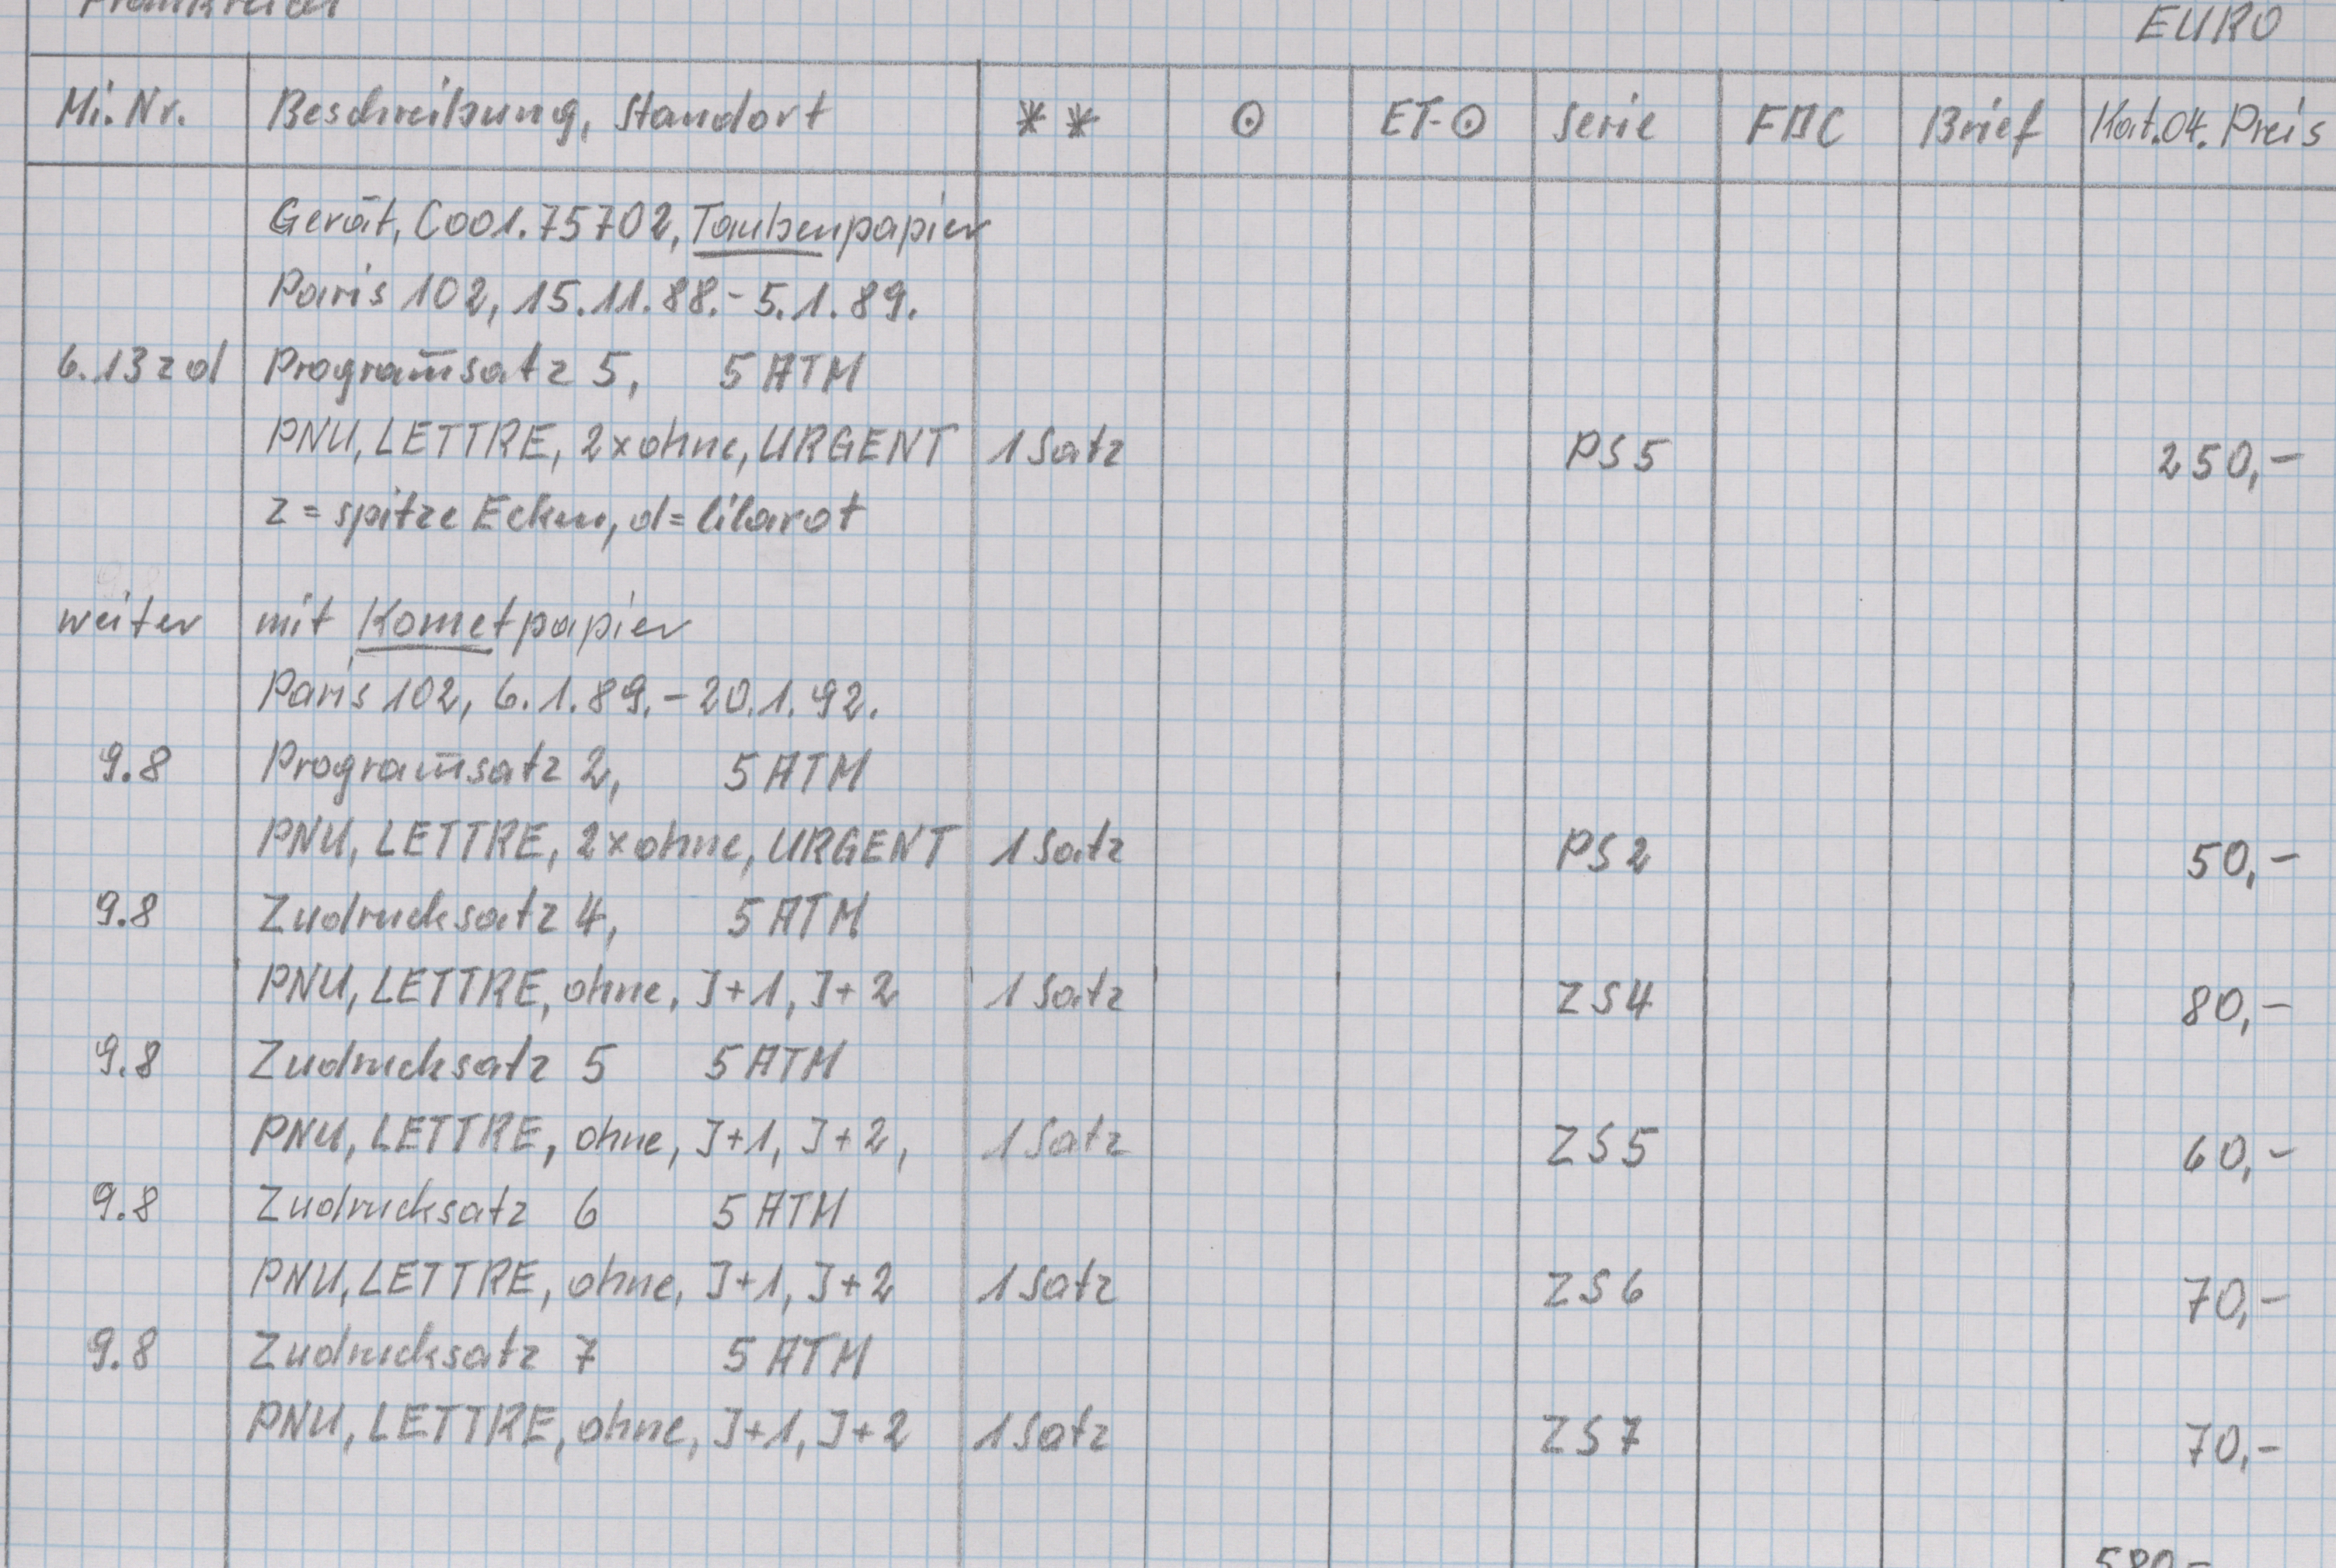 Frankreich
EURO
Mi. Nr. Beschreibung, Standort ** ⊙ ET-⊙ Serie FDC Brief Kat.04. Preis
Gerät, C001.75702, Taubenpapier
Paris 102, 15.11.88.- 5.1.89.
6.13zd Programm̄satz 5, 5 ATM
PNU, LETTRE, 2xohne, URGENT 1 Satz PS5 250,-
z = spitze Ecken, d = lilarot
weiter mit Kometpapier
Paris 102, 6.1.89.- 20.1.92.
9.8 Programm̄satz 2, 5 ATM
PNU, LETTRE, 2xohne, URGENT 1 Satz PS2 50,-
9.8 Zudrucksatz 4, 5 ATM
PNU, LETTRE, ohne, J+1, J+2 1 Satz ZS4 80,-
9.8 Zudrucksatz 5 5 ATM
PNU, LETTRE, ohne, J+1, J+2, 1 Satz ZS5 60,-
9.8 Zudrucksatz 6 5 ATM
PNU, LETTRE, ohne, J+1, J+2 1 Satz ZS6 70,-
9.8 Zudrucksatz 7 5 ATM
PNU, LETTRE, ohne, J+1, J+2 1 Satz ZS7 70,-
580,-